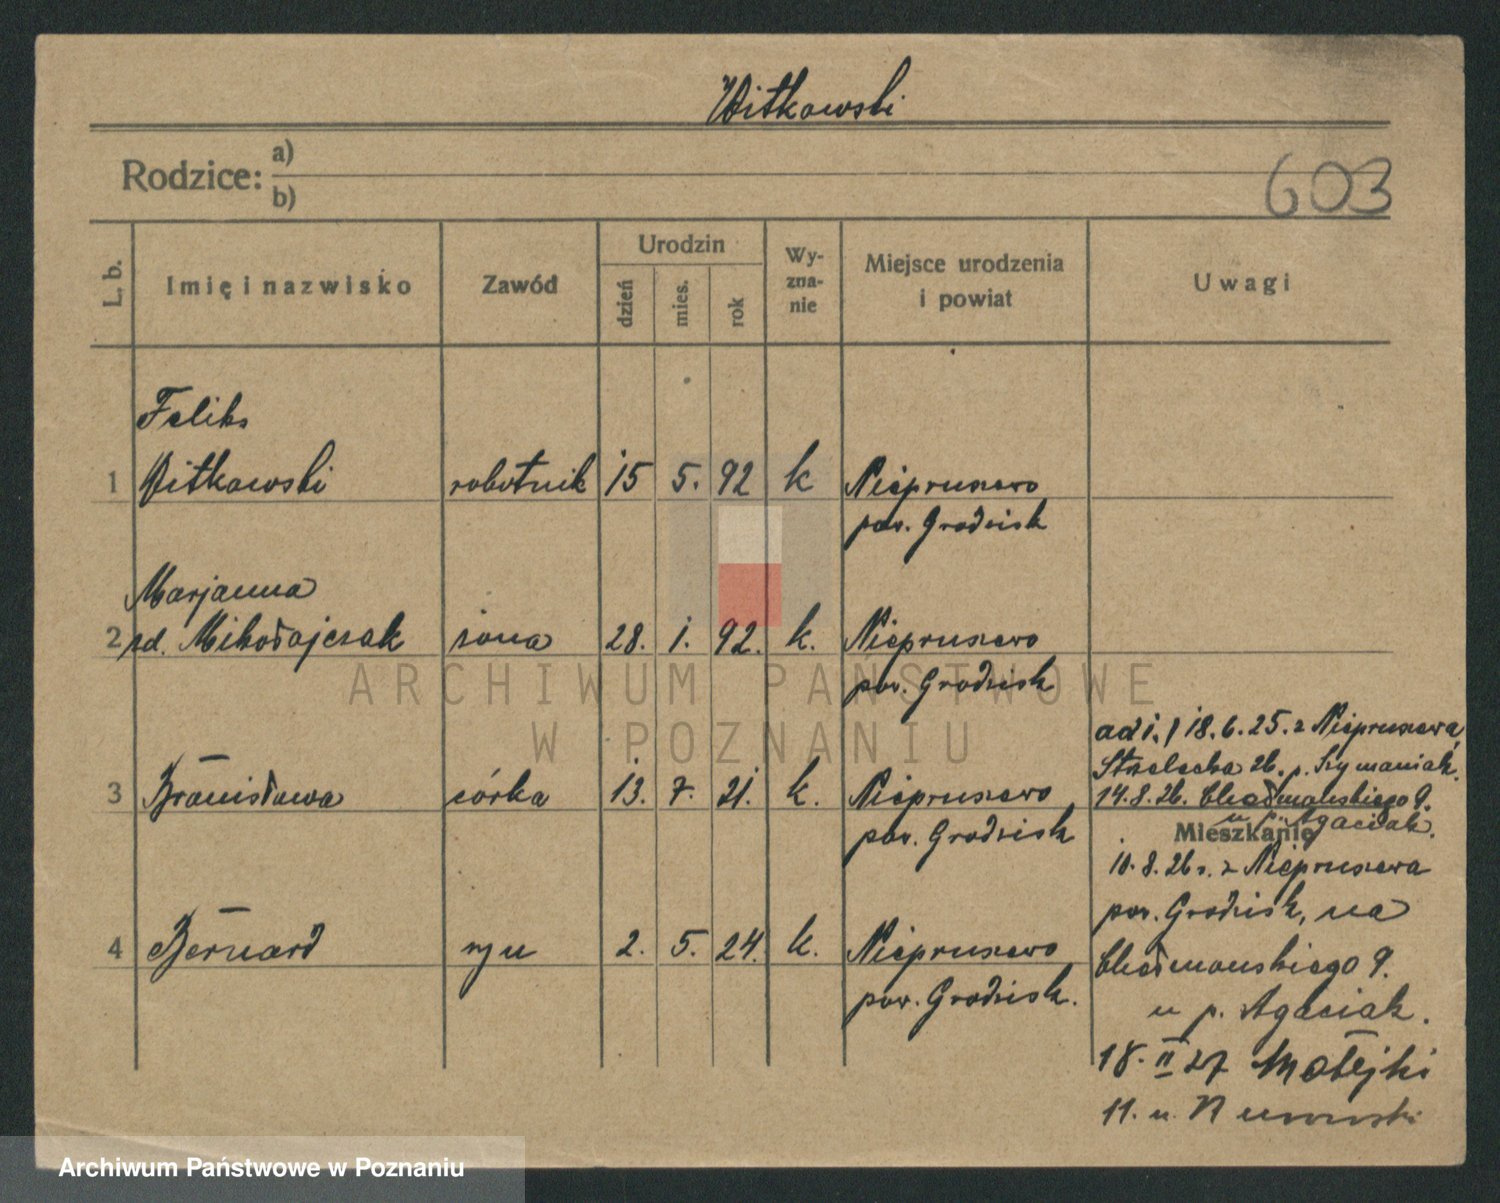 Witkowski
Rodzice: a)
b)
603
L. b.
Imię i nazwisko
Zawód
Urodzin
dzień
mies.
rok
Wy-
zna-
nie
Miejsce urodzenia
i powiat
Uwagi
Feliks
1 Witkowski robotnik 15 5. 92 k Niepruszewo
pow. Grodzisk
Marjanna
2 zd. Mikołajczak żona 28. 1. 92. k. Niepruszewo
pow. Grodzisk
ad 1. / 18.6.25. z Niepruszewa,
Strzelecka 26. p. Szymaniak.
3 Bronisława córka 13. 7. 21. k. Niepruszewo
14.8.26. Chełmońskiego 9.
u p. Agaciak.
pow. Grodzisk
Mieszkanie
10.8.26 r. z Niepruszewa
pow. Grodzisk, na
4 Bernard syn 2. 5. 24. k. Niepruszewo
Chełmońskiego 9.
pow. Grodzisk.
u p. Agaciak.
18. II 27 Matejki
11. u.
ARCHIWUM PAŃSTWOWE
W POZNANIU
Archiwum Państwowe w Poznaniu